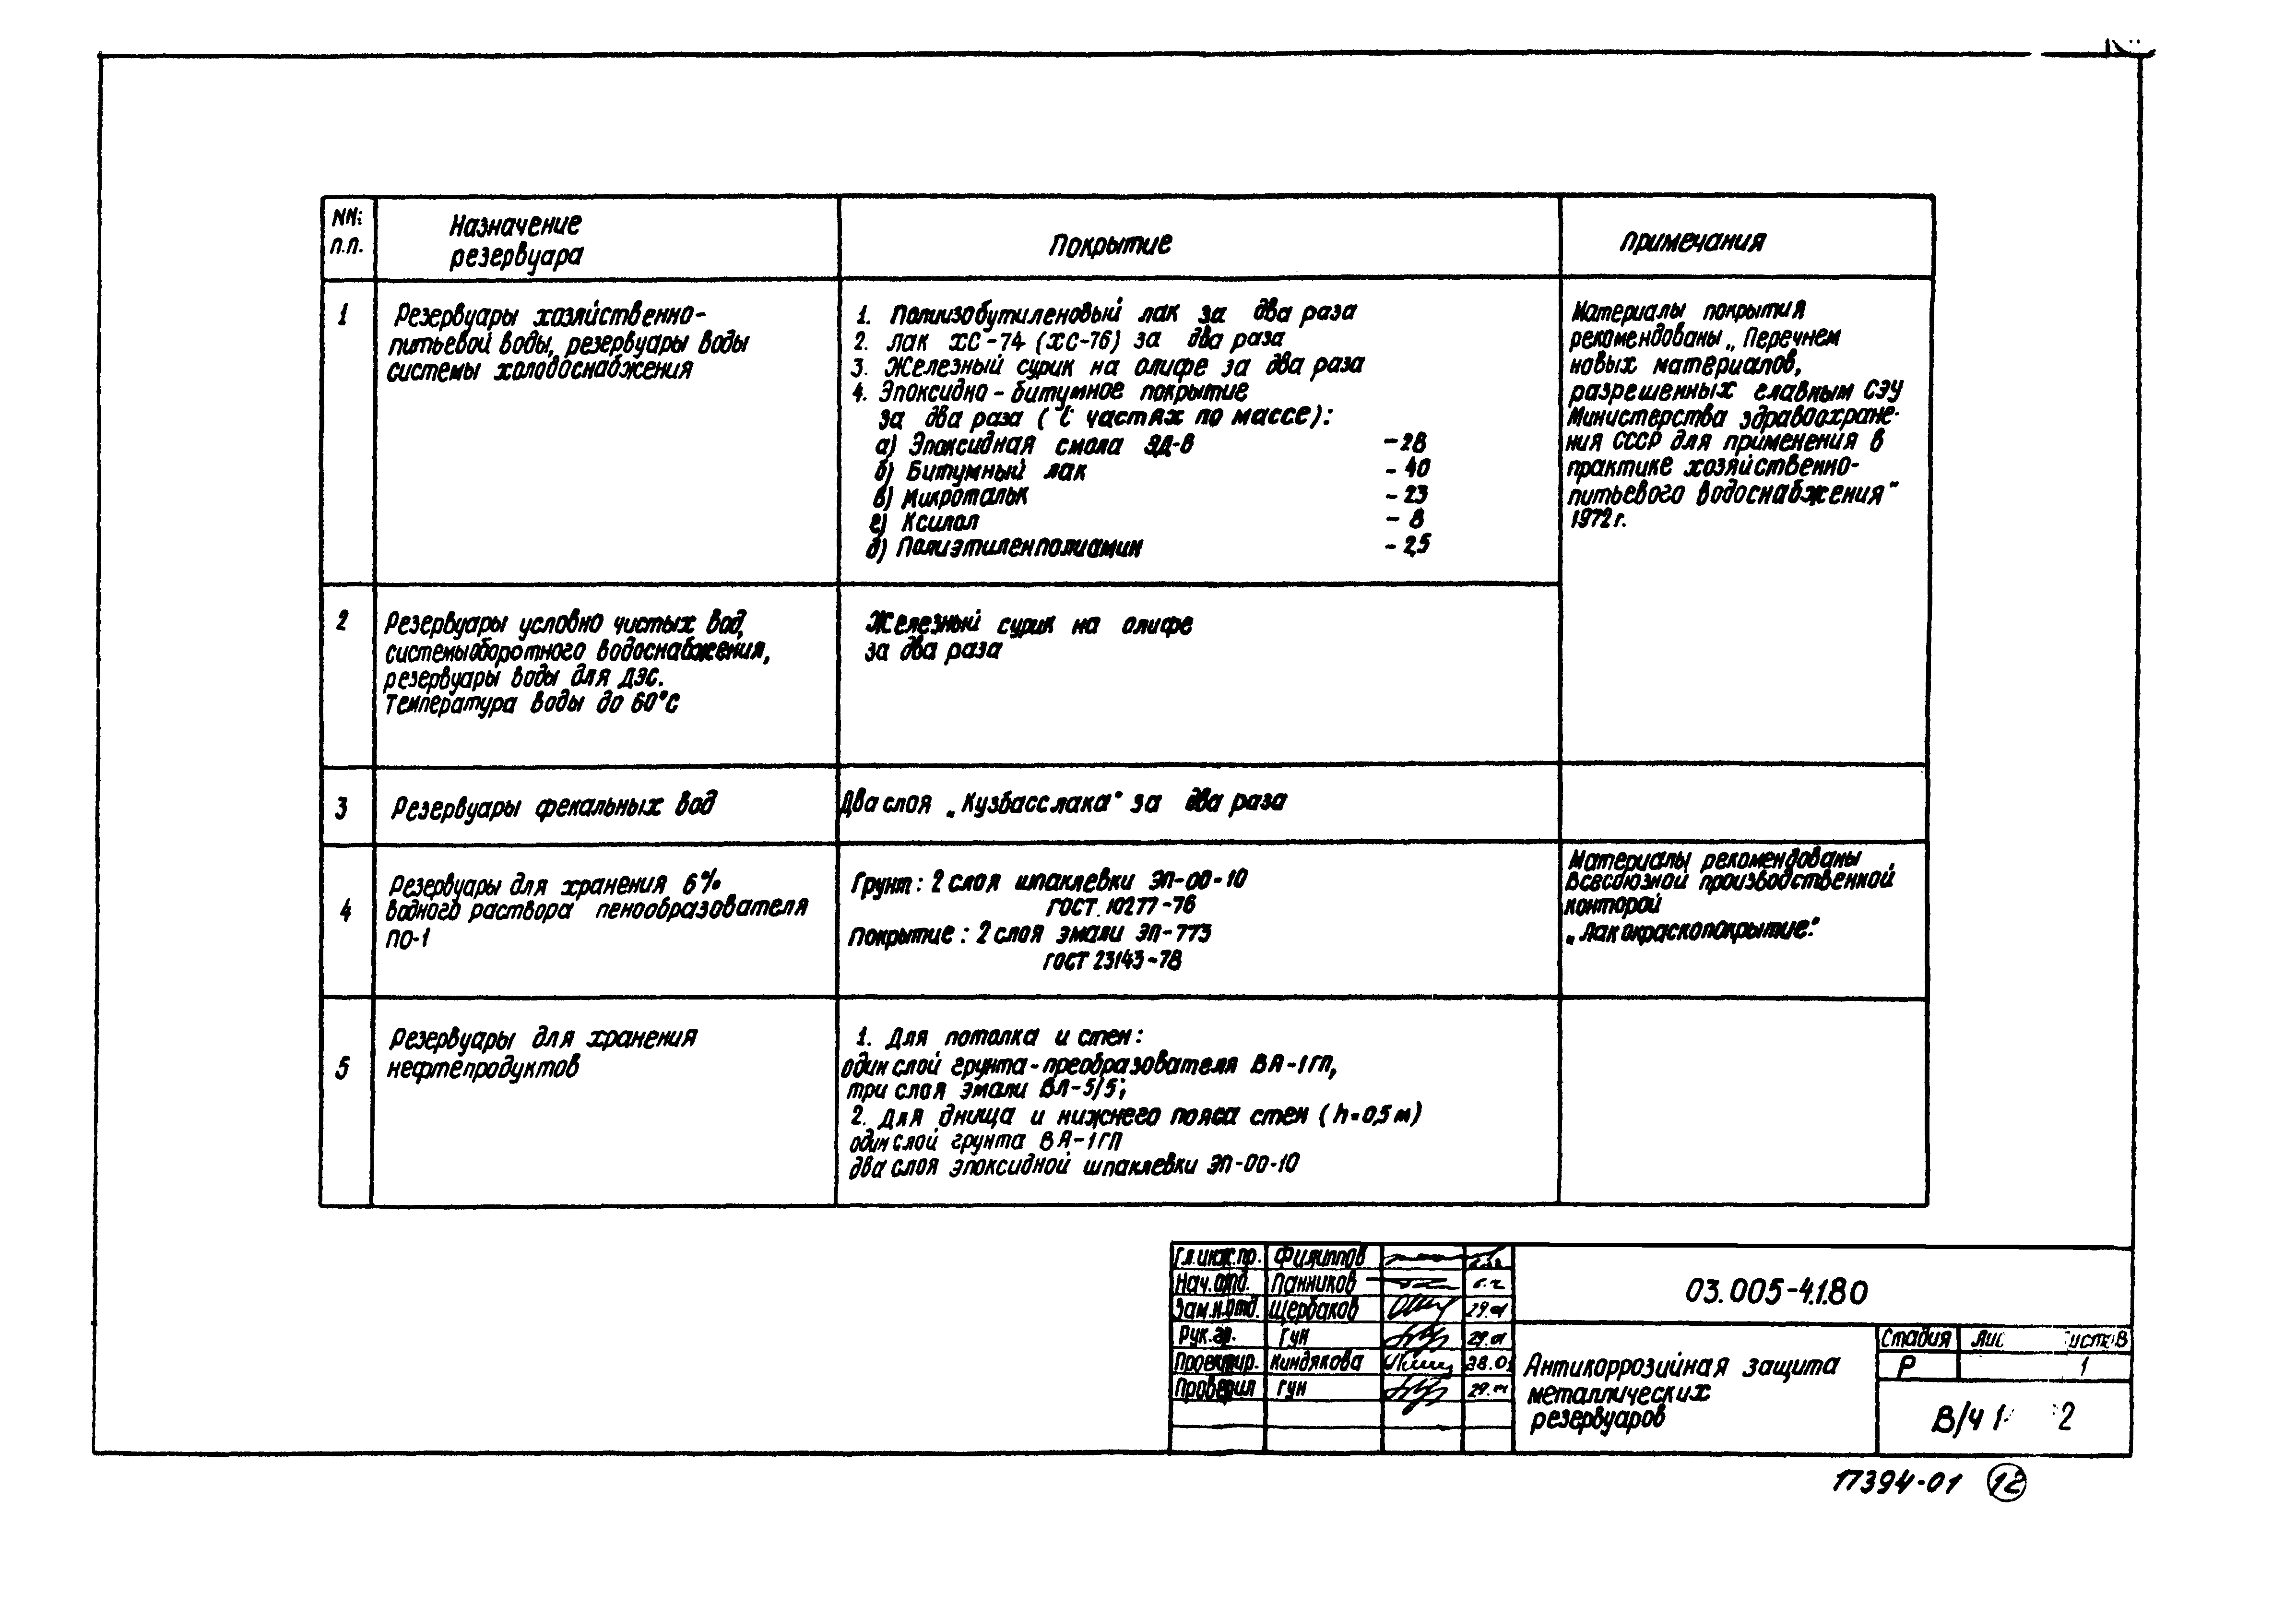 NN:
п.п.
Назначение
резервуара
Покрытие
Примечания
1
Резервуары хозяйственно-
питьевой воды, резервуары воды
системы холодоснабжения
1. Полиизобутиленовый лак за два раза
2. Лак ХС-74 (ХС-76) за два раза
3. Железный сурик на олифе за два раза
4. Эпоксидно-битумное покрытие
за два раза ( с частях по массе):
а) Эпоксидная смола ЭД-8 -28
б) Битумный лак - 40
в) Микротальк - 23
г) Ксилол - 8
д) Полиэтиленполиамин - 2,5
Материалы покрытия
рекомендованы „Перечнем
новых материалов,
разрешенных главным СЭУ
Министерства здравоохране-
ния СССР для применения в
практике хозяйственно-
питьевого водоснабжения"
1972г.
2
Резервуары условно чистых вод,
системы оборотного водоснабжения,
резервуары воды для ДЭС.
Температура воды до 60°С
Железный сурик на олифе
за два раза
3
Резервуары фекальных вод
Два слоя „Кузбасслака" за два раза
4
Резервуары для хранения 6%
водного раствора пенообразователя
ПО-1
Грунт: 2 слоя шпаклевки ЭП-00-10
ГОСТ 10277-76
Покрытие: 2 слоя эмали ЭП-773
ГОСТ 23143-78
Материалы рекомендованы
Всесоюзной производственной
конторой
„Лакокраскопокрытие".
5
Резервуары для хранения
нефтепродуктов
1. Для потолка и стен:
один слой грунта-преобразователя ВА-1ГП,
три слоя эмали ВЛ-515;
2. Для днища и нижнего пояса стен (h=0,5м)
один слой грунта ВА-1ГП
два слоя эпоксидной шпаклевки ЭП-00-10
Гл.инж.пр. Филиппов
Нач.отд. Панников
Зам.н.отд. Щербаков 29.01
Рук.гр. Гун 29.01
Проектир. Киндякова 28.01
Проверил Гун 29.01
03.005-4.1.80
Антикоррозийная защита
металлических
резервуаров
Стадия
Р 1
В/ч
17394-01 12